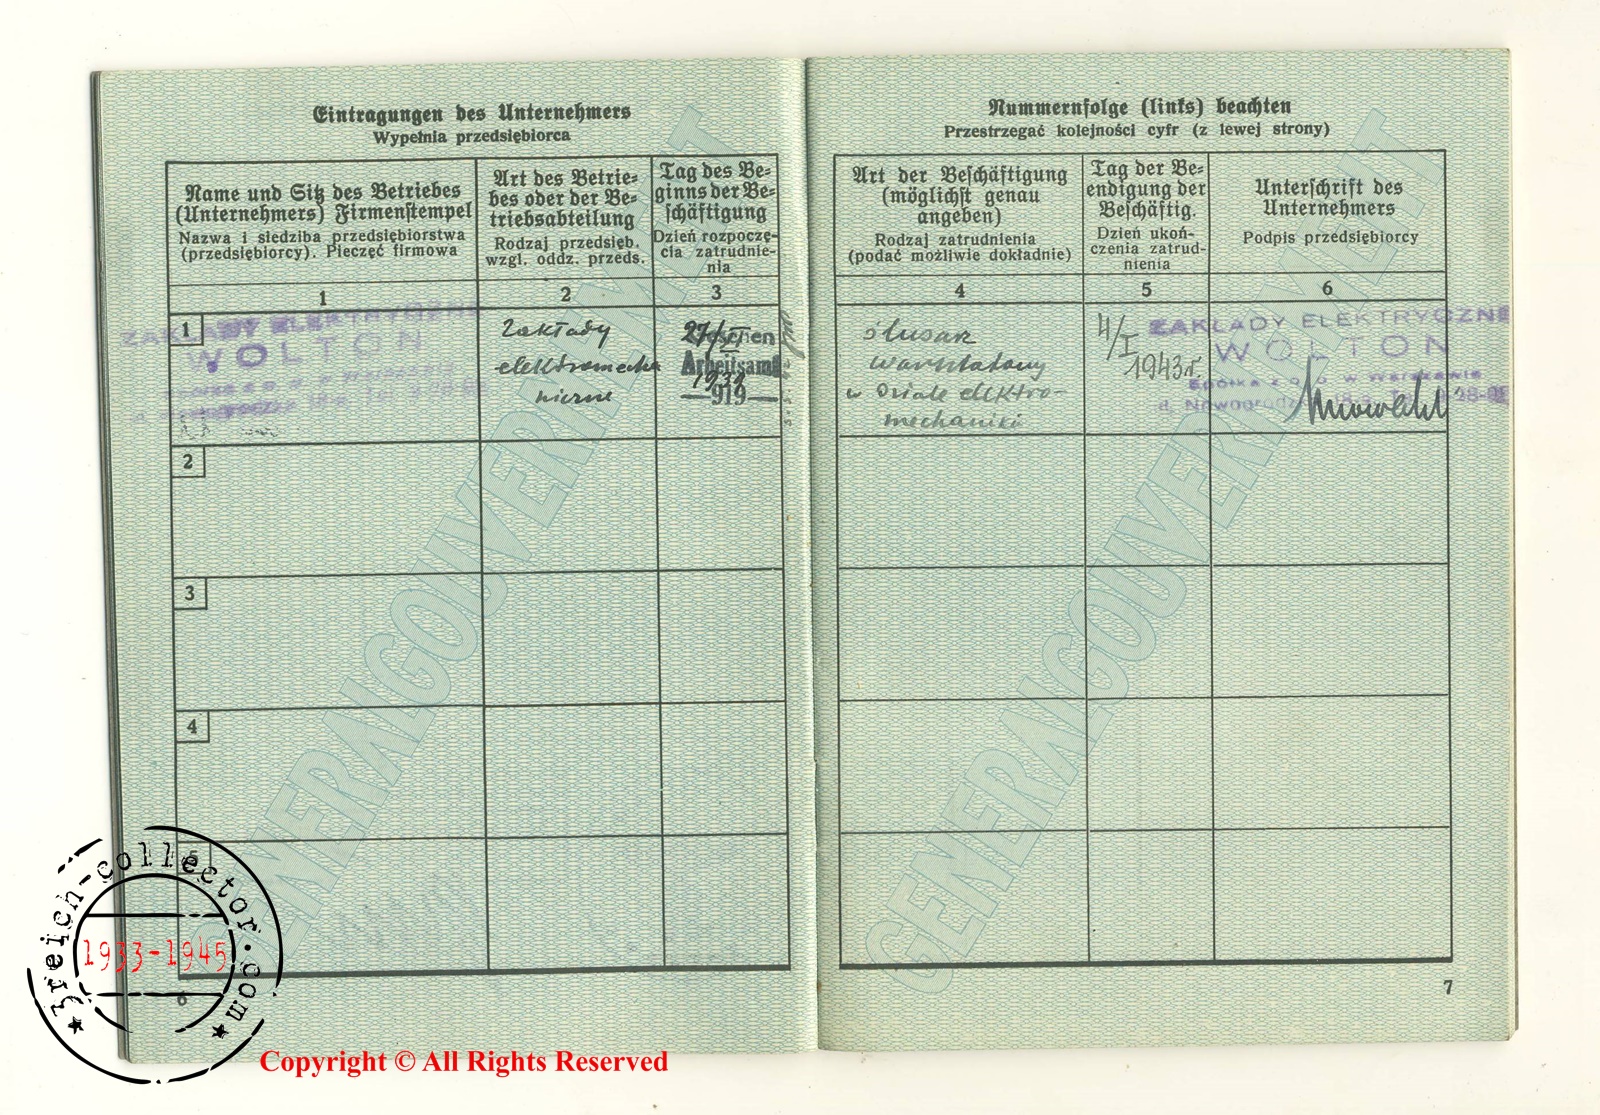 Eintragungen des Unternehmers
Wypełnia przedsiębiorca
Name und Sitz des Betriebes
(Unternehmers) Firmenstempel
Nazwa i siedziba przedsiębiorstwa
(przedsiębiorcy). Pieczęć firmowa
Art des Betrie-
bes oder der Be-
triebsabteilung
Rodzaj przedsięb.
wzgl. oddz. przeds.
Tag des Be-
ginns der Be-
schäftigung
Dzień rozpoczę-
cia zatrudnie-
nia
1
2
3
1
ZAKŁADY ELEKTRYCZNE
WOLTON
Zakłady
elektromecha
niczne
27/VI
Arbeitsamt
—919—
2
3
4
5
6
Nummernfolge (links) beachten
Przestrzegać kolejności cyfr (z lewej strony)
Art der Beschäftigung
(möglichst genau
angeben)
Rodzaj zatrudnienia
(podać możliwie dokładnie)
Tag der Be-
endigung der
Beschäftig.
Dzień ukoń-
czenia zatrud-
nienia
Unterschrift des
Unternehmers
Podpis przedsiębiorcy
4
5
6
ślusarz
warsztatowy
w dziale elektro-
mechaniki
4/I
1943 r.
ZAKŁADY ELEKTRYCZNE
WOLTON
Spółka z o. o. w Warszawie
7
GENERALGOUVERNEMENT
GENERALGOUVERNEMENT
3reich-collector.com
1933-1945
Copyright © All Rights Reserved